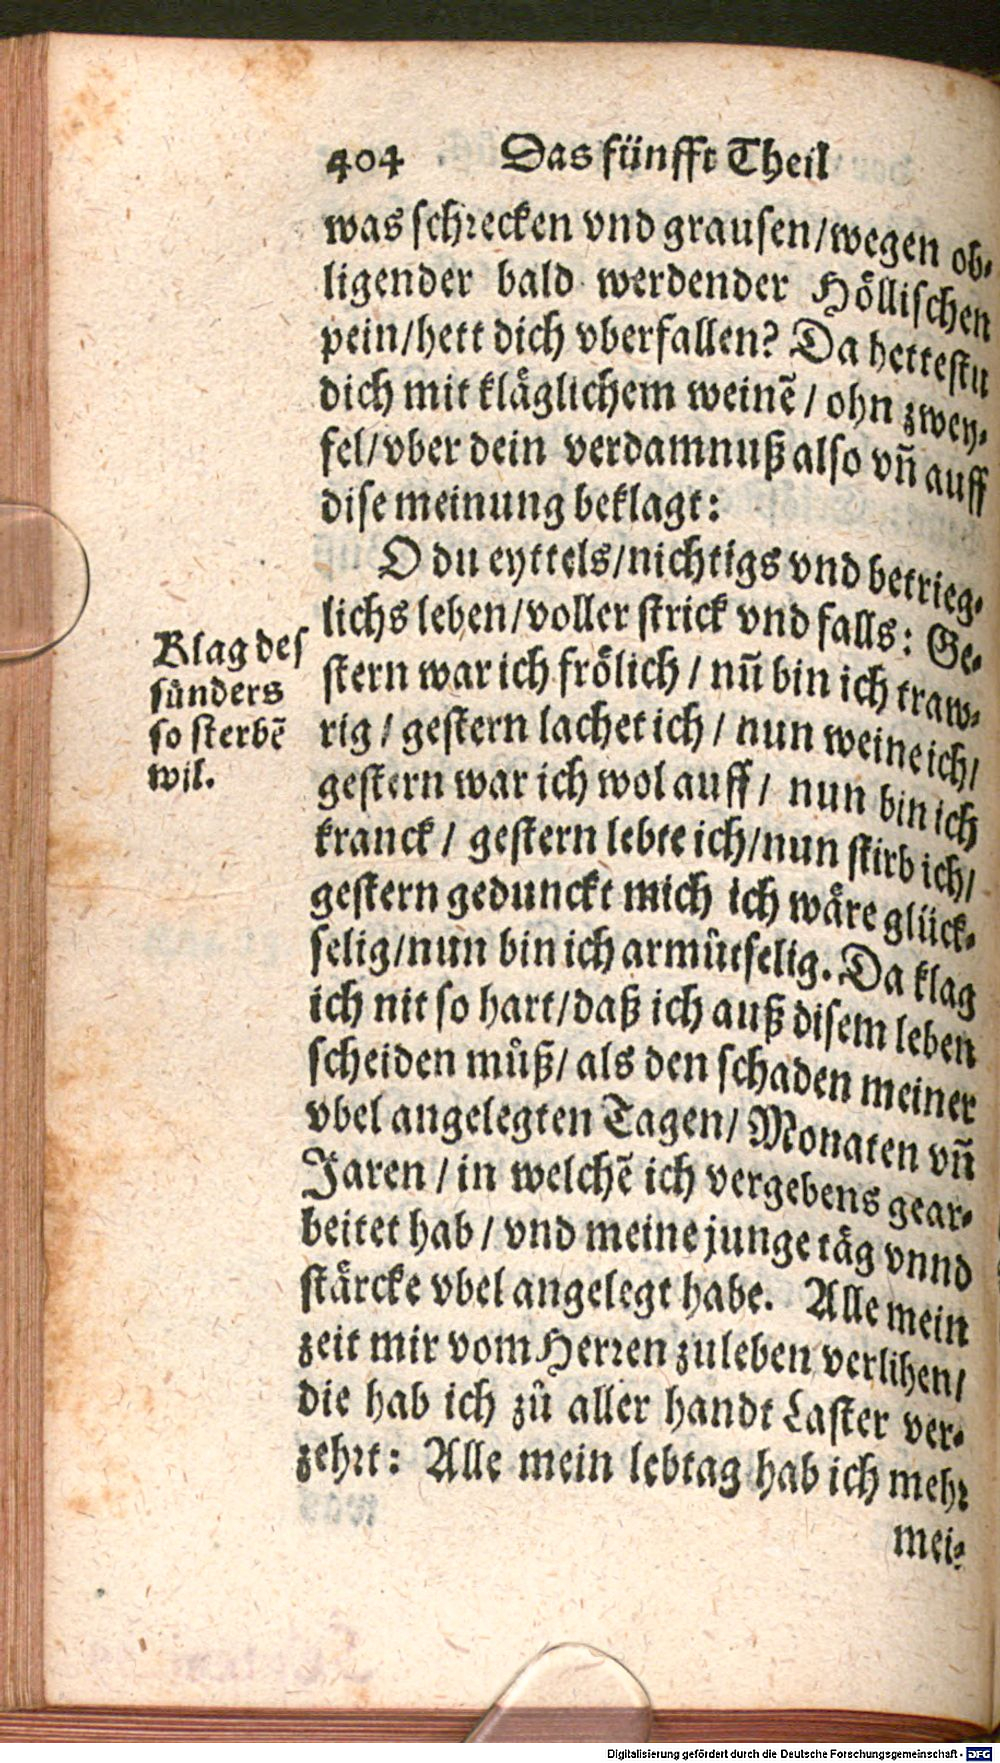 404 Das fünfft Theil
was schrecken vnd grausen/wegen ob-
ligender bald werdender Höllischen
pein/hett dich vberfallen? Da hettestu
dich mit kläglichem weinẽ / ohn zwey-
fel/vber dein verdamnuß also vñ auff
dise meinung beklagt:
O du eyttels/nichtigs vnd betrieg-
lichs leben/voller strick vnd falls: Ge-
stern war ich frölich / nũ bin ich traw-
rig / gestern lachet ich / nun weine ich/
gestern war ich wol auff / nun bin ich
kranck / gestern lebte ich/nun stirb ich/
gestern gedunckt mich ich wäre glück-
selig/nun bin ich armůtselig. Da klag
ich nit so hart/daß ich auß disem leben
scheiden můß/ als den schaden meiner
vbel angelegten Tagen/ Monaten vñ
Jaren / in welchẽ ich vergebens gear-
beitet hab / vnd meine junge täg vnnd
stärcke vbel angelegt habe. Alle mein
zeit mir vom Herren zuleben verlihen/
die hab ich zů aller handt Laster ver-
zehrt: Alle mein lebtag hab ich mehr
mei-
Klag des
sünders
so sterbẽ
wil.
Digitalisierung gefördert durch die Deutsche Forschungsgemeinschaft - DFG